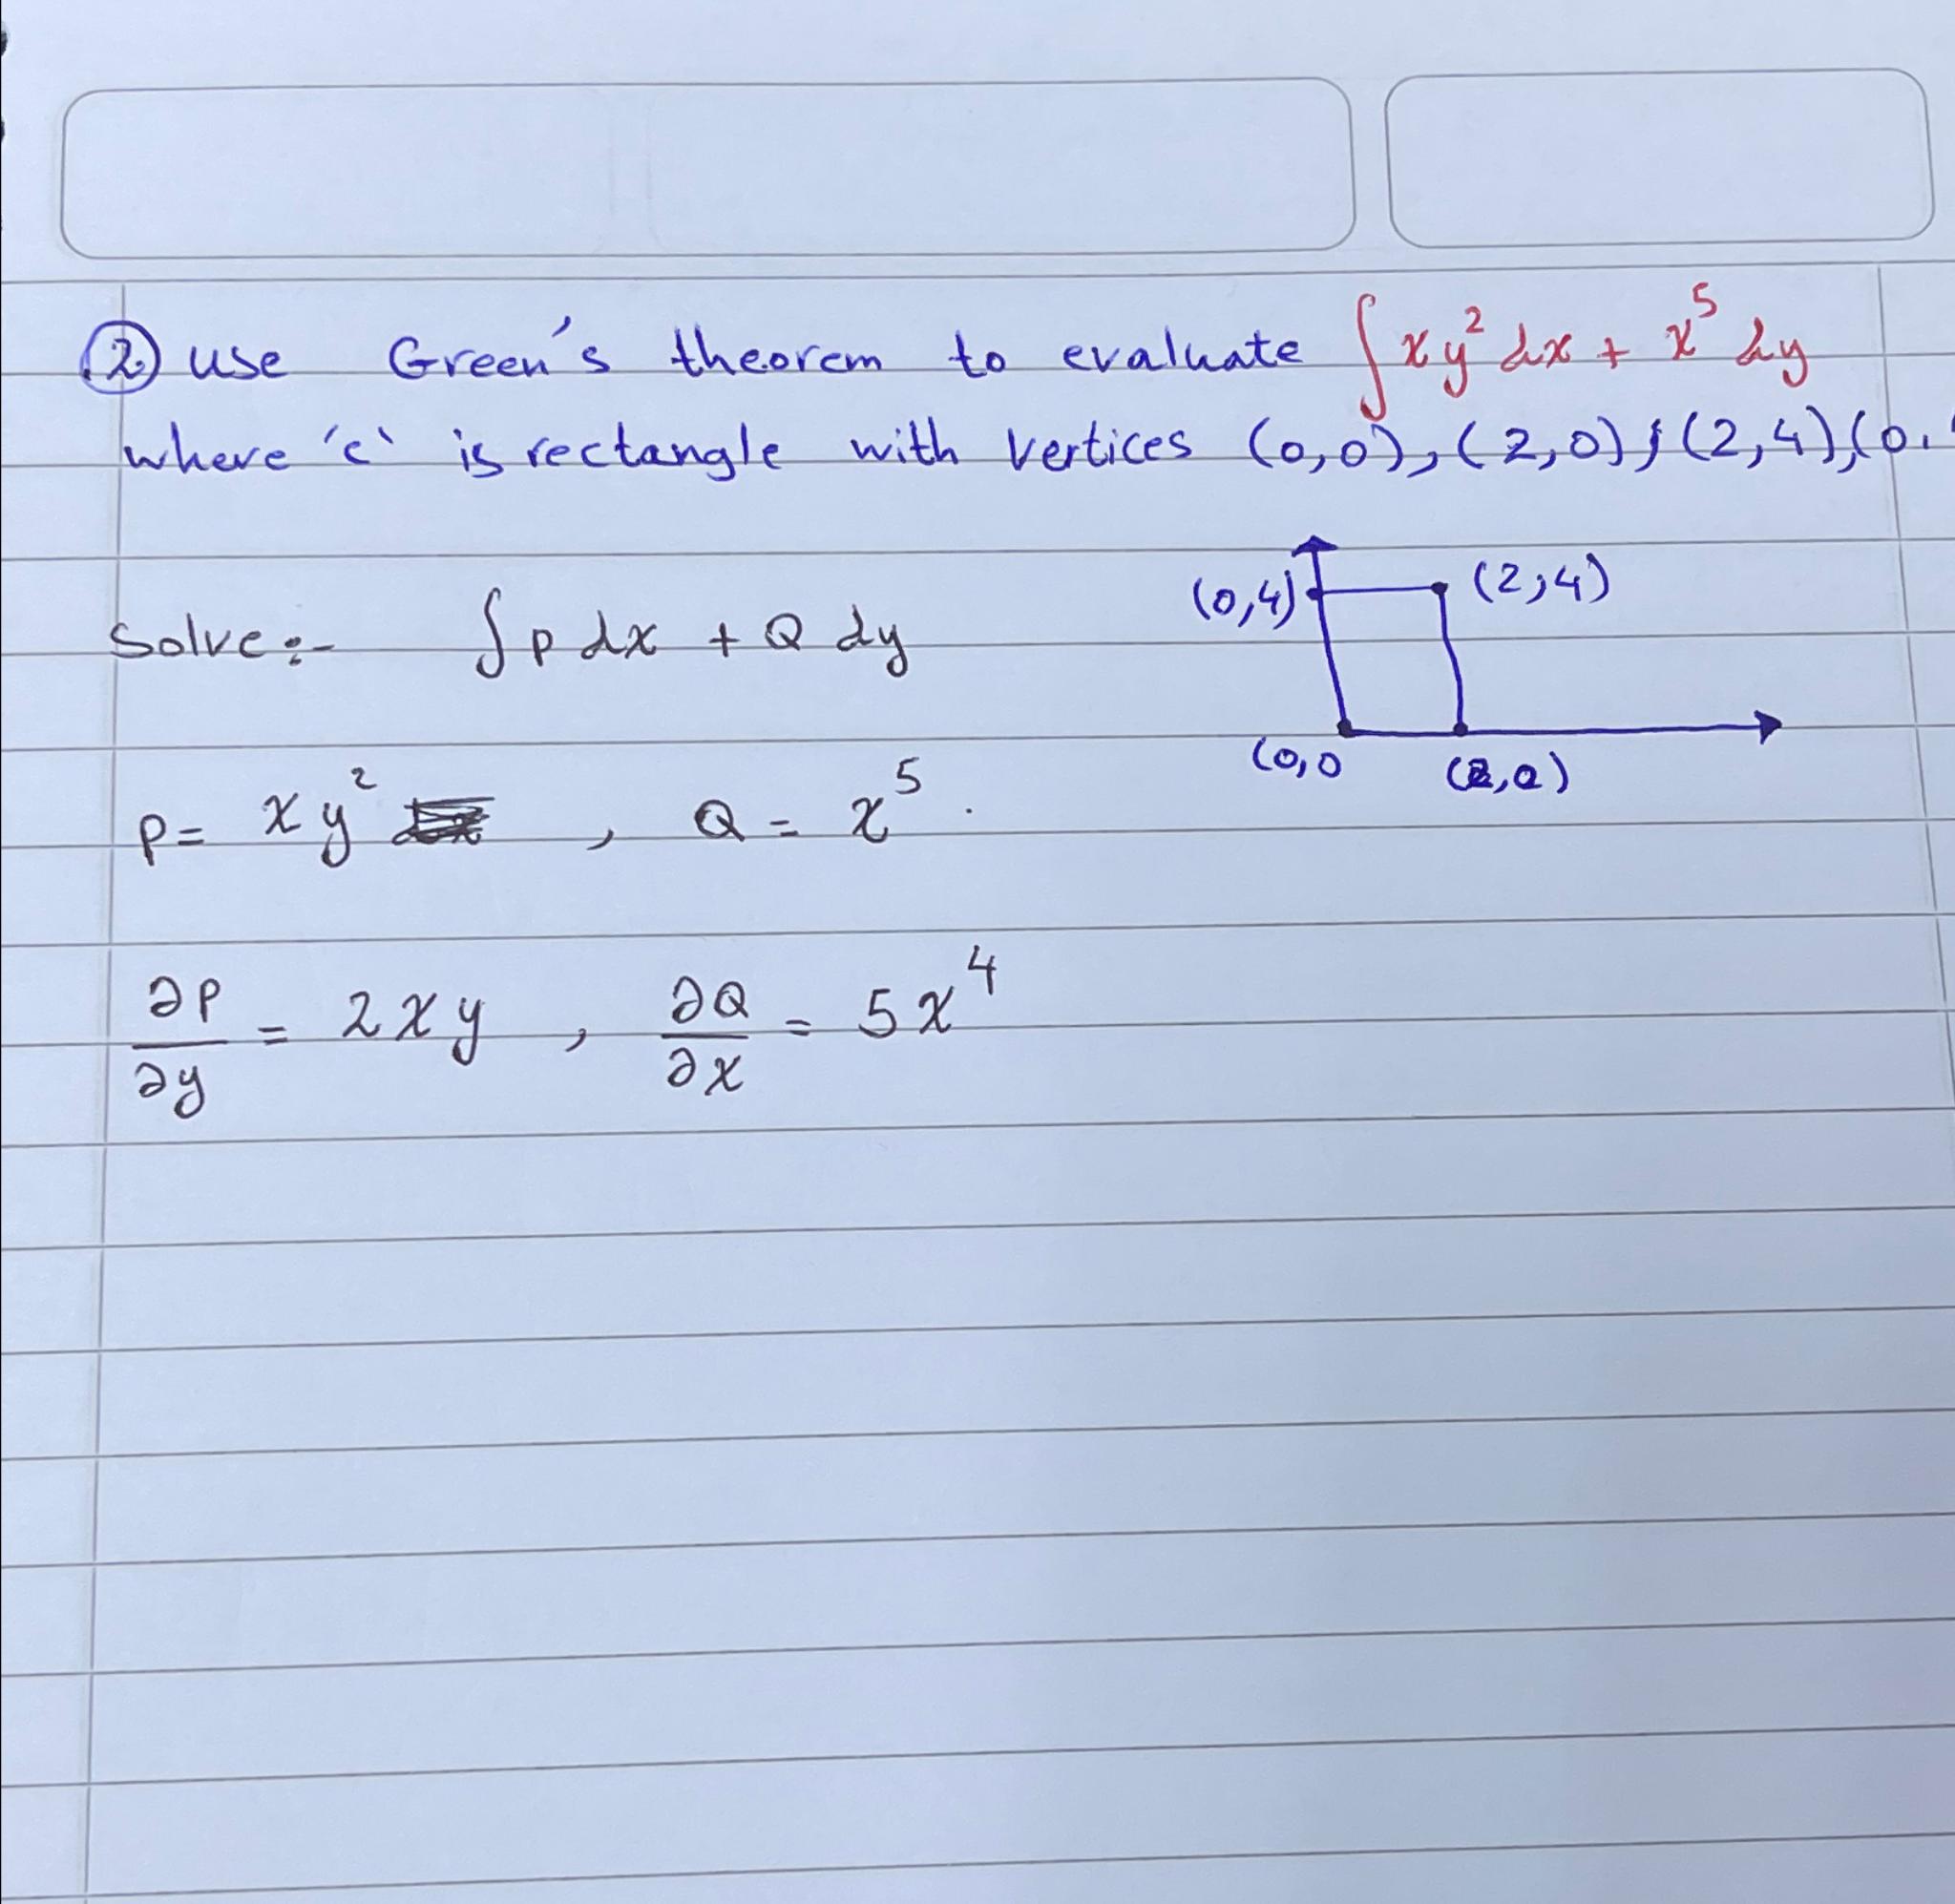 ② use Green's theorem to evaluate ∫xy² dx + x⁵ dy
where 'c' is rectangle with vertices (0,0), (2,0), (2,4), (0,
(0,4) (2,4)
Solve:- ∫ P dx + Q dy
(0,0 (2,0)
P = xy² , Q = x⁵ .
∂P/∂y = 2xy , ∂Q/∂x = 5x⁴